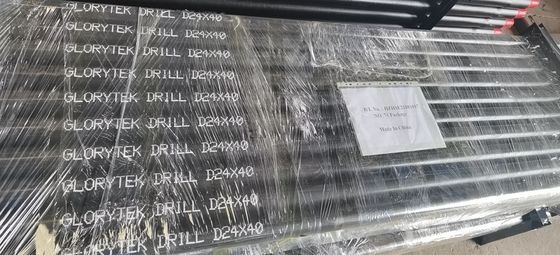 GLORYTEK DRILL D24X40
GLORYTEK DRILL D24X40
GLORYTEK DRILL D24X40
GLORYTEK DRILL D24X40
GLORYTEK DRILL D24X40
GLORYTEK DRILL D24X40
GLORYTEK DRILL D24X40
GLORYTEK DRILL D24X40
GLORYTEK DRILL D24X40
GLORYTEK DRILL D24X40
B/L No.
NO.74 Package
Made In China